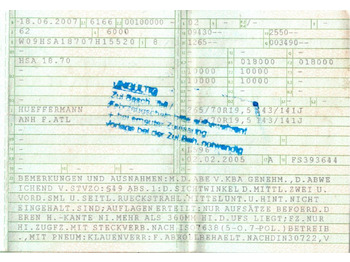 18.06.2007 6166 00100000
62 6000 09430- -2550-
W09HSA18707H15520 8 1.65- -003490-
HSA 18.70 018000 018000
10000 10000
10000
UNGÜLTIG
HUEFFERMANN 265/70R19,5 143/141J
ANH F.ATL 70R19,5 143/141J
Vorlage bei der Zul.Beh. notwendig
02.2005 A FS393644
BEMERKUNGEN UND AUSNAHMEN: M.D.ABE V.KBA GENEHM.,D.ABWE
ICHEND V.STVZO:§49 ABS.1:D.SICHTWINKEL D.MITTL.ZWEI U.
VORD.SML U.SEITL.RUECKSTRAHL.MITTELUNT.U.HINT.NICHT
EINGEHALT.SIND;AUFLAGEN ERTEILT:NUR AUFSATZE BEFOERD.D
EREN H.-KANTE NI.MEHR ALS 360MM HI.D.UFS LIEGT;FZ.NUR
HI.ZUGFZ.MIT STECKVERB.NACH ISO7638(5-O.7-POL.)BETREIB
.,MIT PNEUM:KLAUENVER:F.ABROLLBEHAELT.NACHDIN30722,V